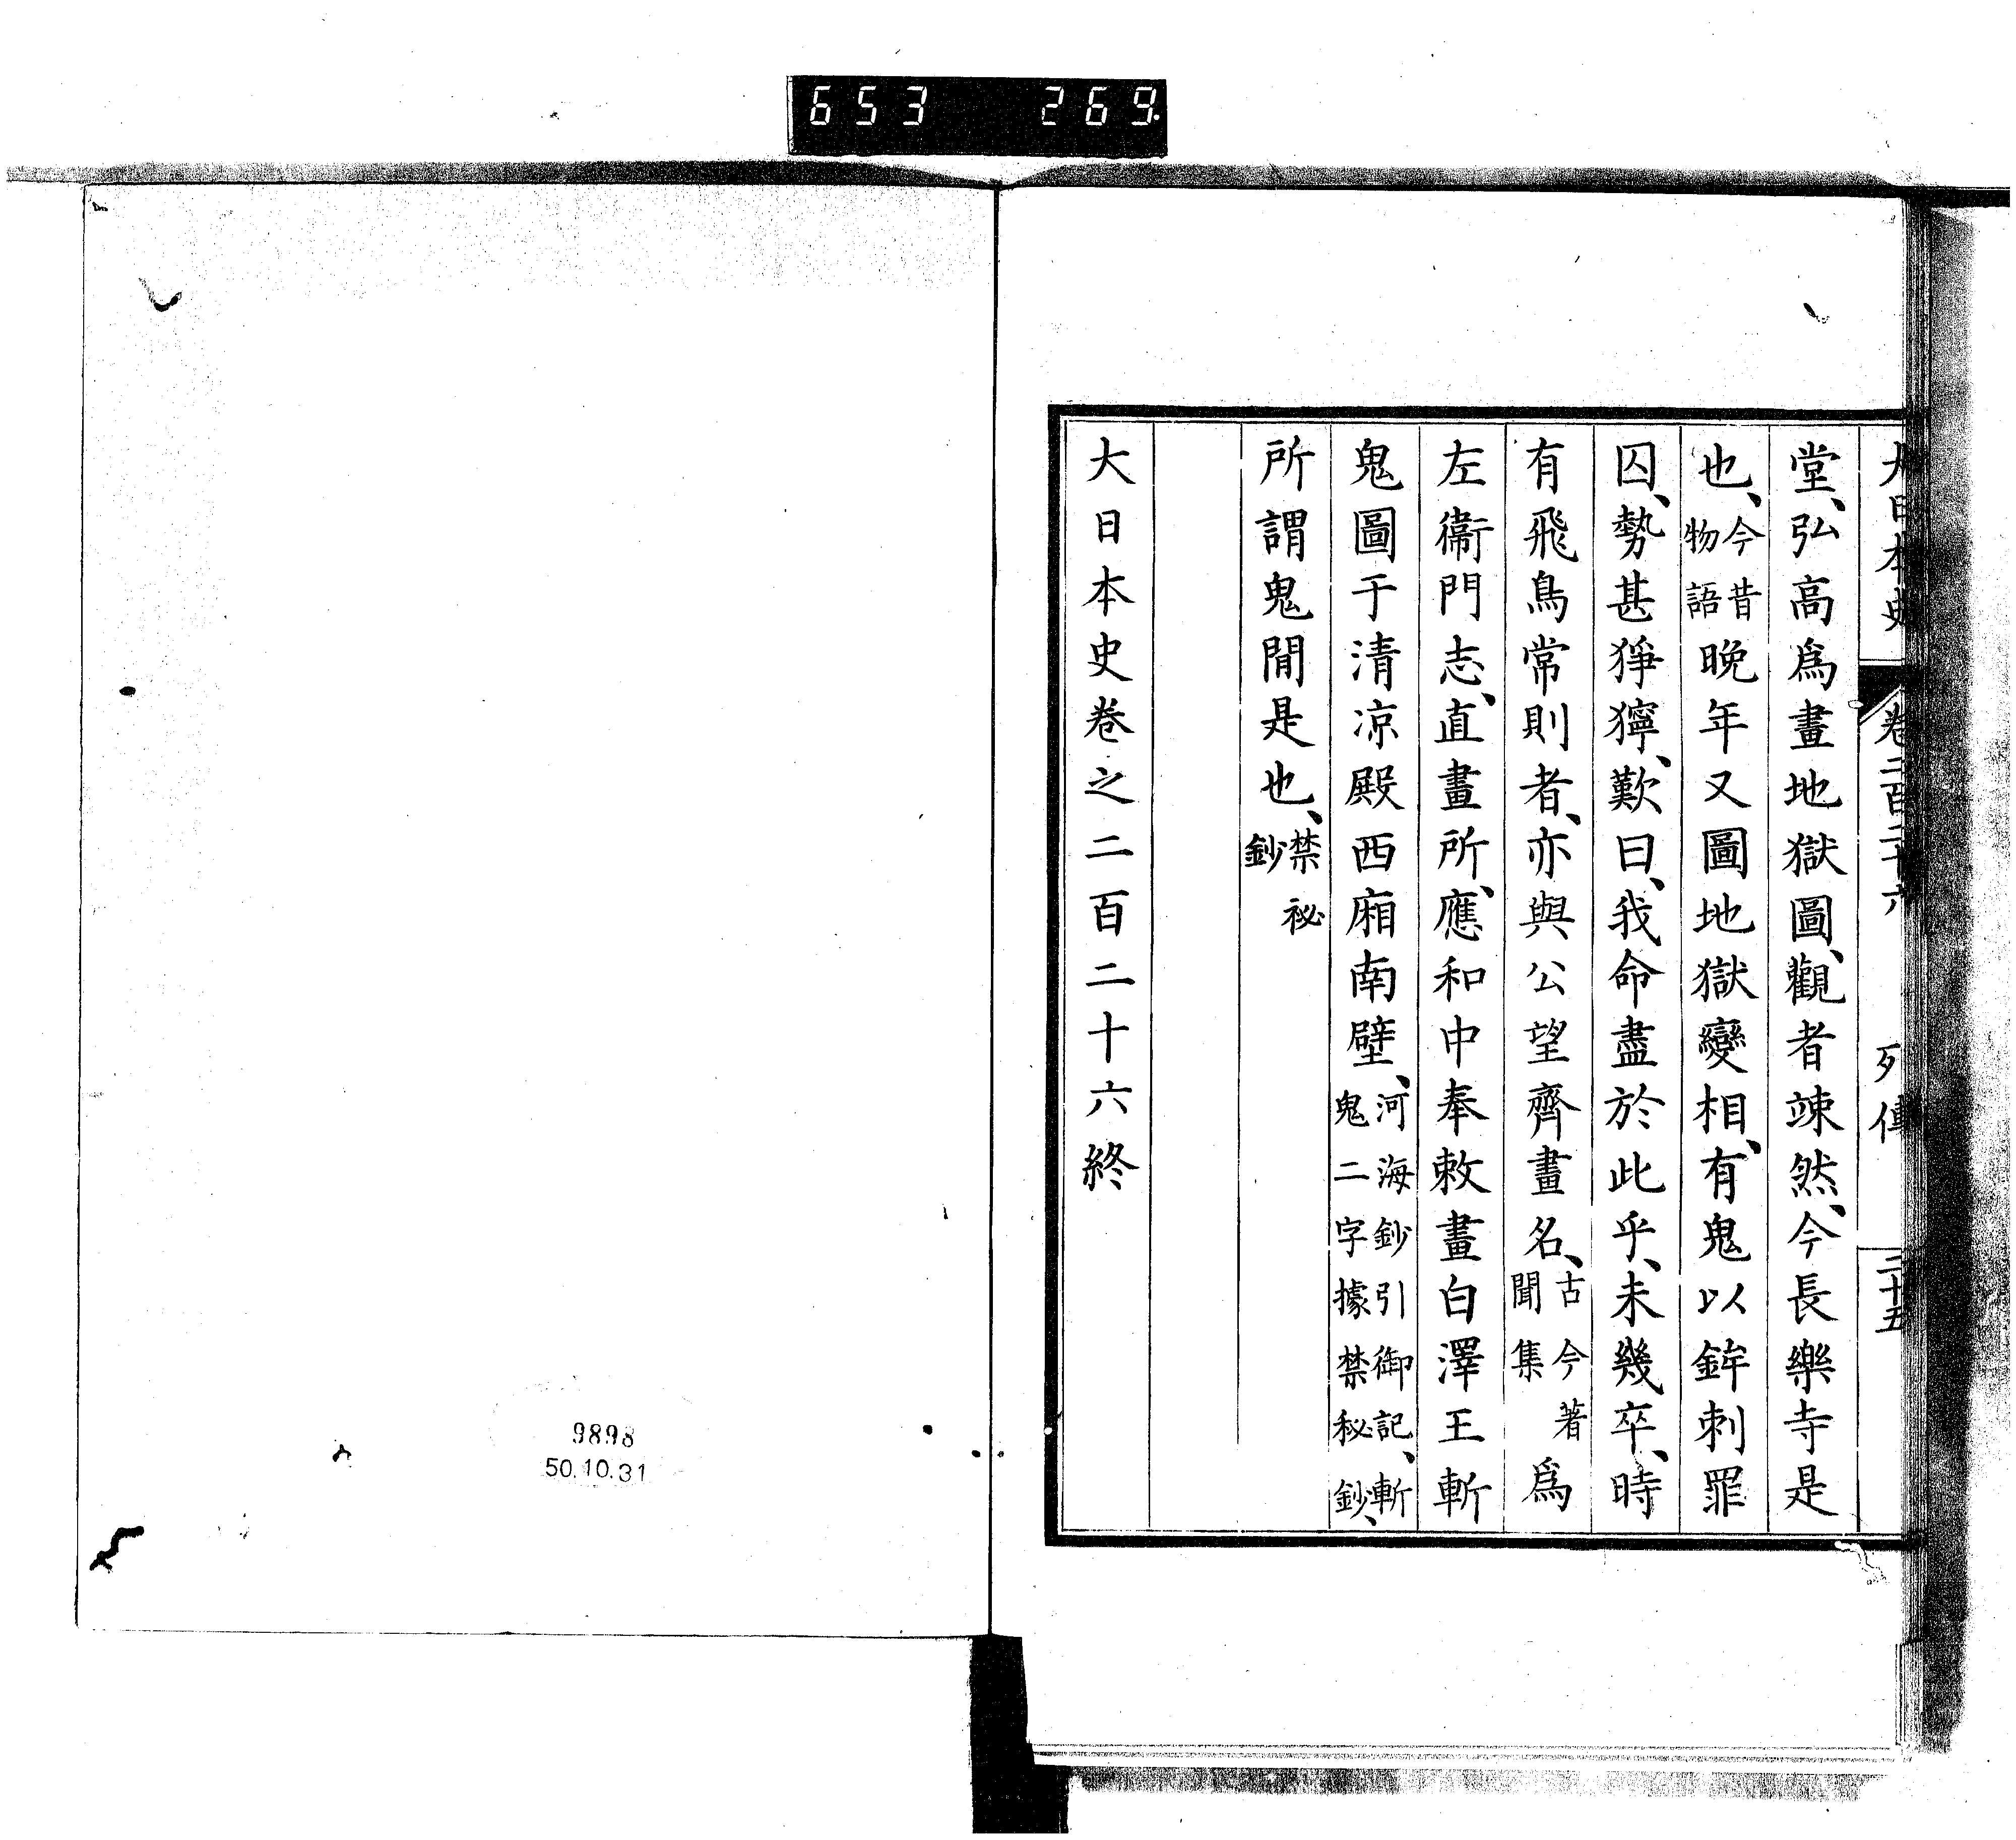 653 269
大日本史 卷二百二十六 列傳 二十五
堂、弘高爲畫地獄圖、觀者竦然、今長樂寺是
也、今昔物語晚年又圖地獄變相、有鬼以鉾刺罪
囚、勢甚猙獰、歎曰、我命盡於此乎、未幾卒、時
有飛鳥常則者、亦與公望齊畫名、古今著聞集爲
左衞門志、直畫所、應和中奉敕畫白澤王斬
鬼圖于清凉殿西廂南壁、河海鈔引御記、斬鬼二字據禁秘鈔、
所謂鬼閒是也、禁祕鈔
大日本史卷之二百二十六終
9898
50.10.31